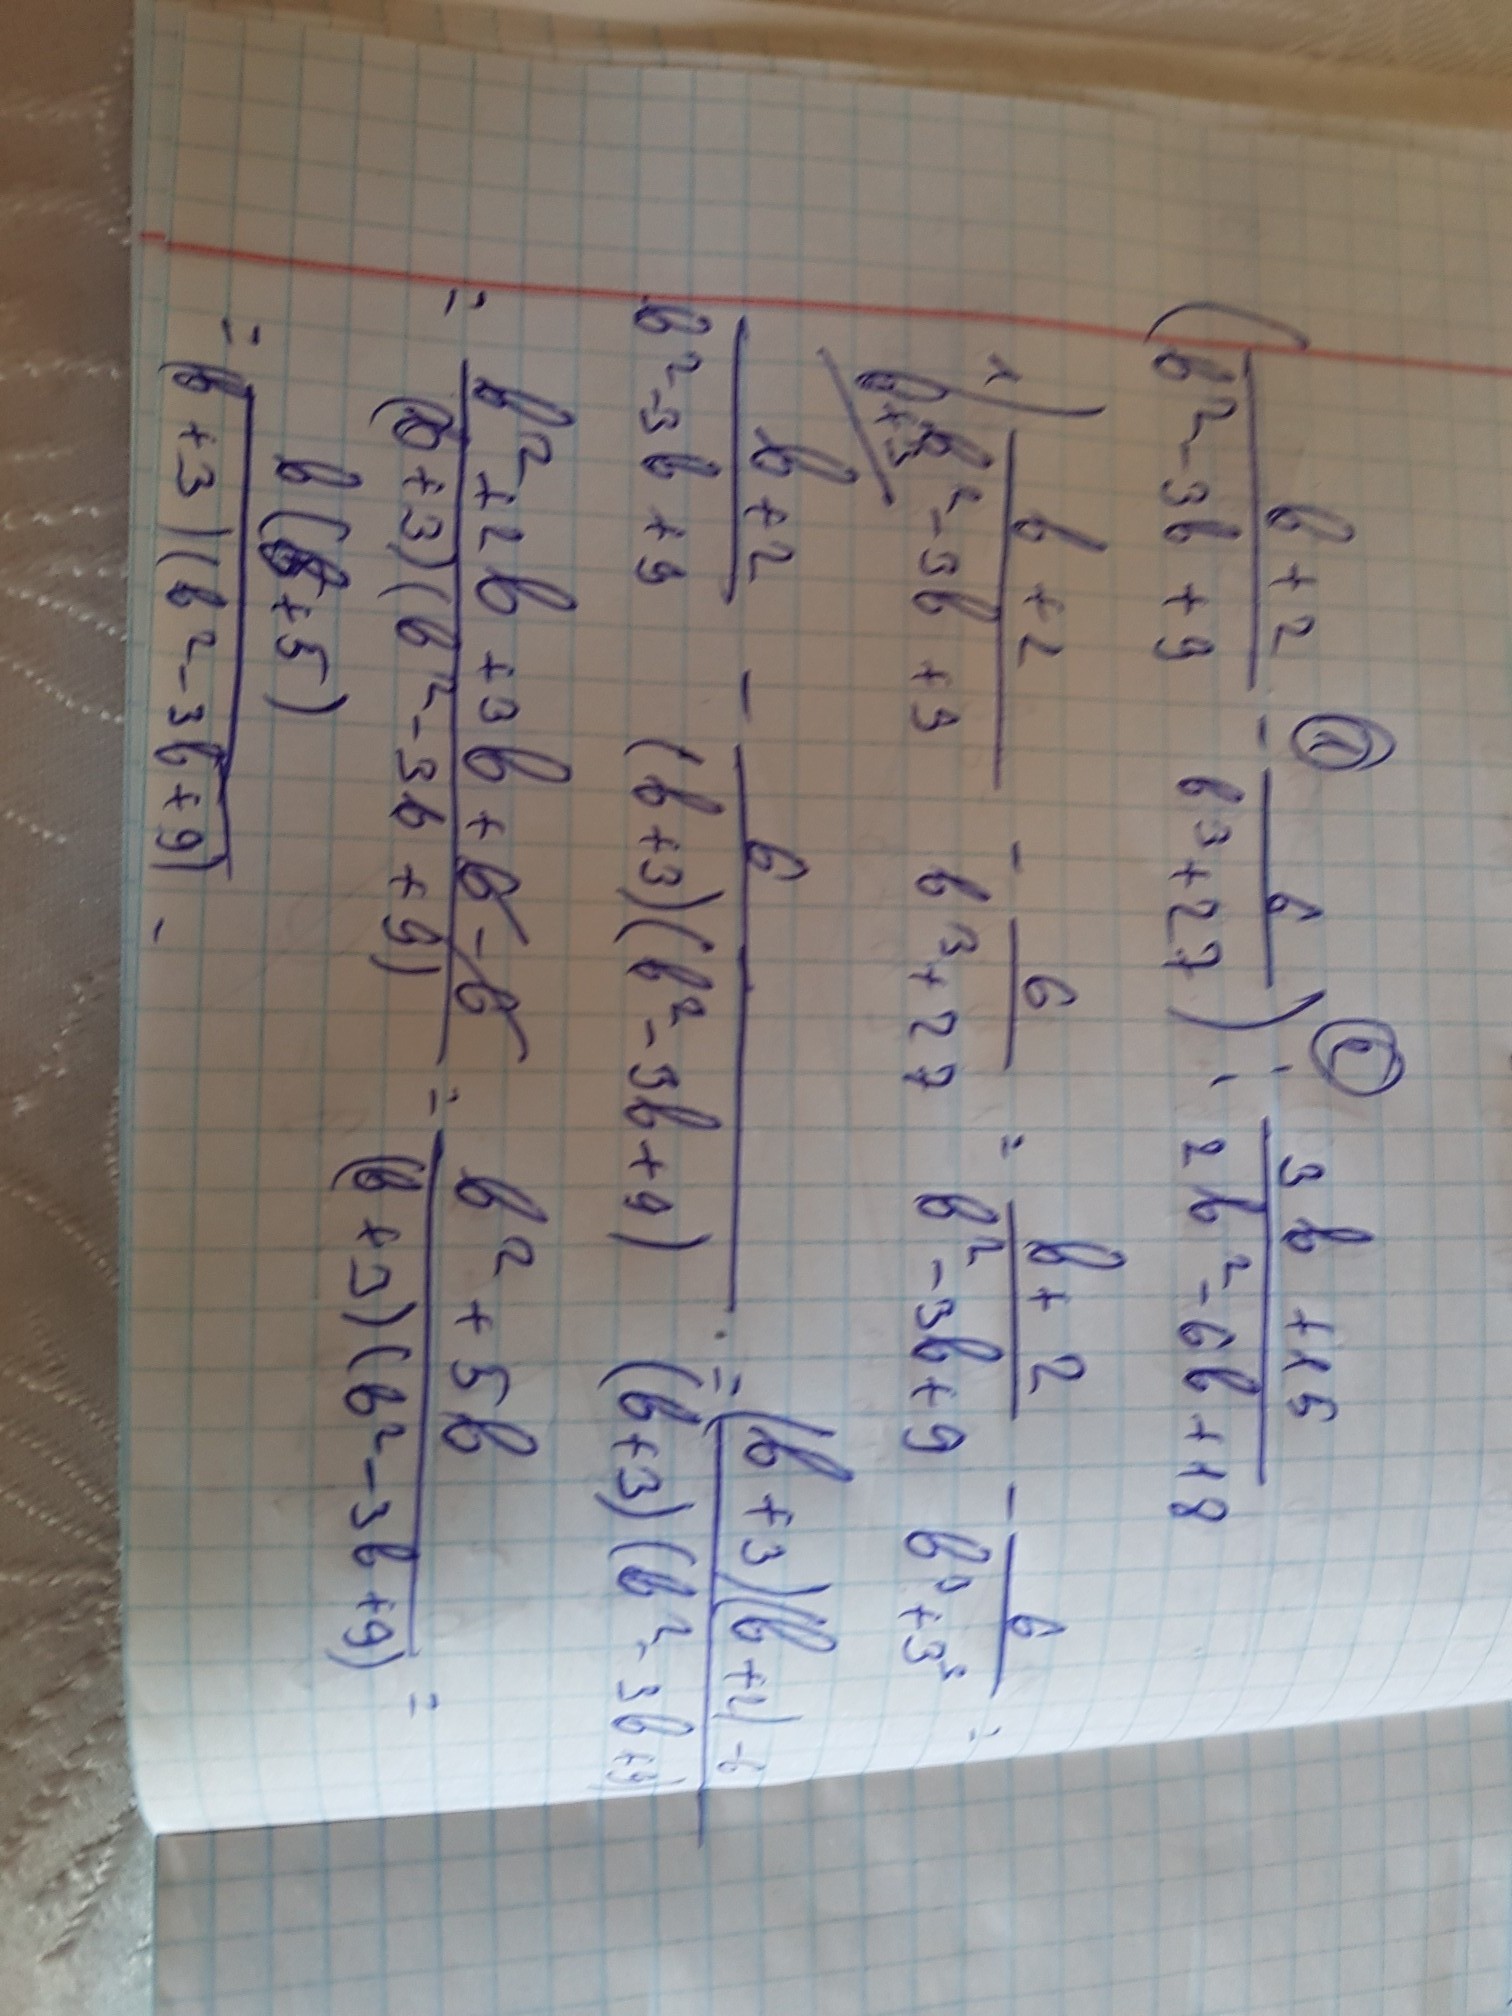 ( (b + 2)/(b² - 3b + 9) -① 6/(b³ + 27) ) :② (3b + 15)/(2b² - 6b + 18)
1) (b + 2)/(b² - 3b + 9) - 6/(b³ + 27) = (b + 2)/(b² - 3b + 9) - 6/(b³ + 3³) =
b + 3
(b + 2)/(b² - 3b + 9) - 6/((b + 3)(b² - 3b + 9)) = ((b + 3)(b + 2) - 6)/((b + 3)(b² - 3b + 9))
= (b² + 2b + 3b + 6 - 6)/((b + 3)(b² - 3b + 9)) = (b² + 5b)/((b + 3)(b² - 3b + 9)) =
= b(b + 5)/(b + 3)(b² - 3b + 9) -